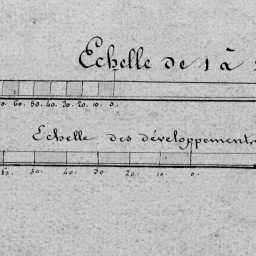 Echelle de 1 à
60. 50. 40. 30. 20. 10. 0.
Echelle des développements
50. 40. 30. 20. 10. 0.